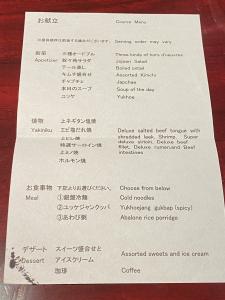 お献立 Course Menu
Serving order may vary
前菜 三種オードブル Three kinds of hors d'oeuvres
Appetizer Jojoen Salad
Boiled oxtail
キムチ盛合せ Assorted Kimchi
チャプチェ Japchae
本日のスープ Soup of the day
ユッケ Yukhoe
焼物 上ネギタン塩焼
Yakiniku エビ塩だれ焼
特選サーロイン焼
上ミノ焼
ホルモン焼
Deluxe salted beef tongue with
shredded leek, Shrimp, Super
deluxe sirloin, Deluxe beef
fillet, Deluxe rumen and Beef
intestines
お食事物 下記よりお選びください。 Choose from below
Meal ①盛岡冷麺 Cold noodles
②ユッケジャンクッパ Yukhoejang gukbap (spicy)
③あわび粥 Abalone rice porridge
デザート スイーツ盛合せと Assorted sweets and ice cream
Dessert アイスクリーム
珈琲 Coffee